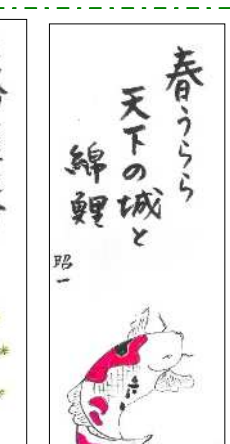 春うらら
天下の城と
綿鯉
昭一